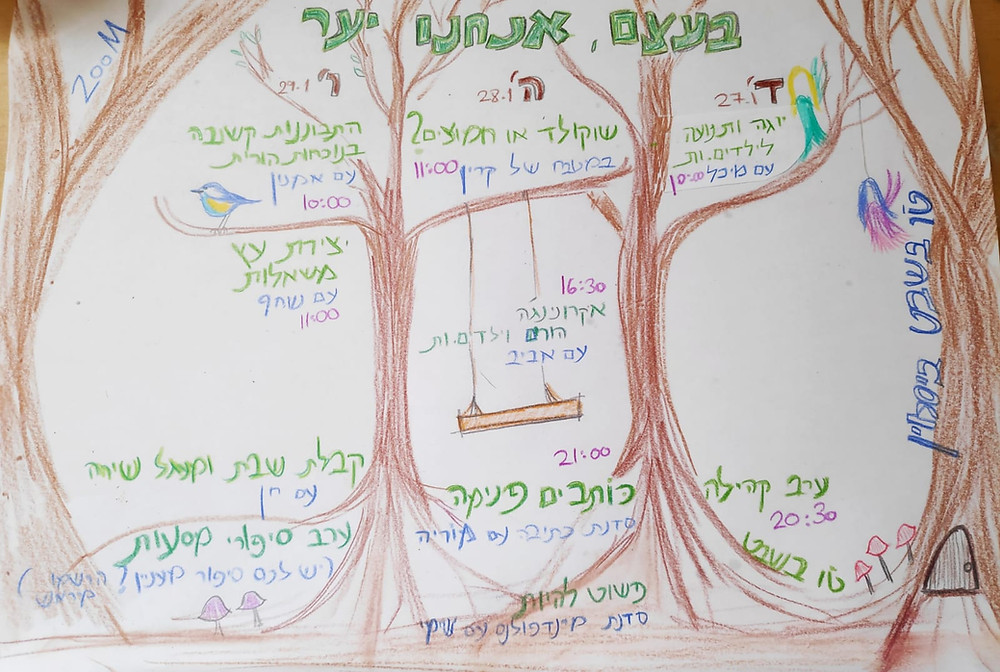 בעצם, אנחנו יער
200M
ד' 27.1
יוגה ותנועה
לילדים.ות
עם מיכל 10:00
ערב קהילה
20:30
טו בשבט
ה' 28.1
שוקולד או חמוצים?
במטבח של קרין 11:00
16:30
אקרויוגה
הורים וילדים.ות
עם אביב
21:00
כותבים פנימה
סדנת כתיבה עם מוריה
פשוט להיות
סדנת מיינדפולנס עם שקי
ו' 29.1
התבוננות קשובה
בנוכחות הורית
עם אמנון
10:00
יצירות עץ
משאלות
עם שחף
11:00
קבלת שבת ומעגל שירה
עם חן
ערב סיפורי מסעות
(יש לכם סיפור מעניין? הירשמו מראש)